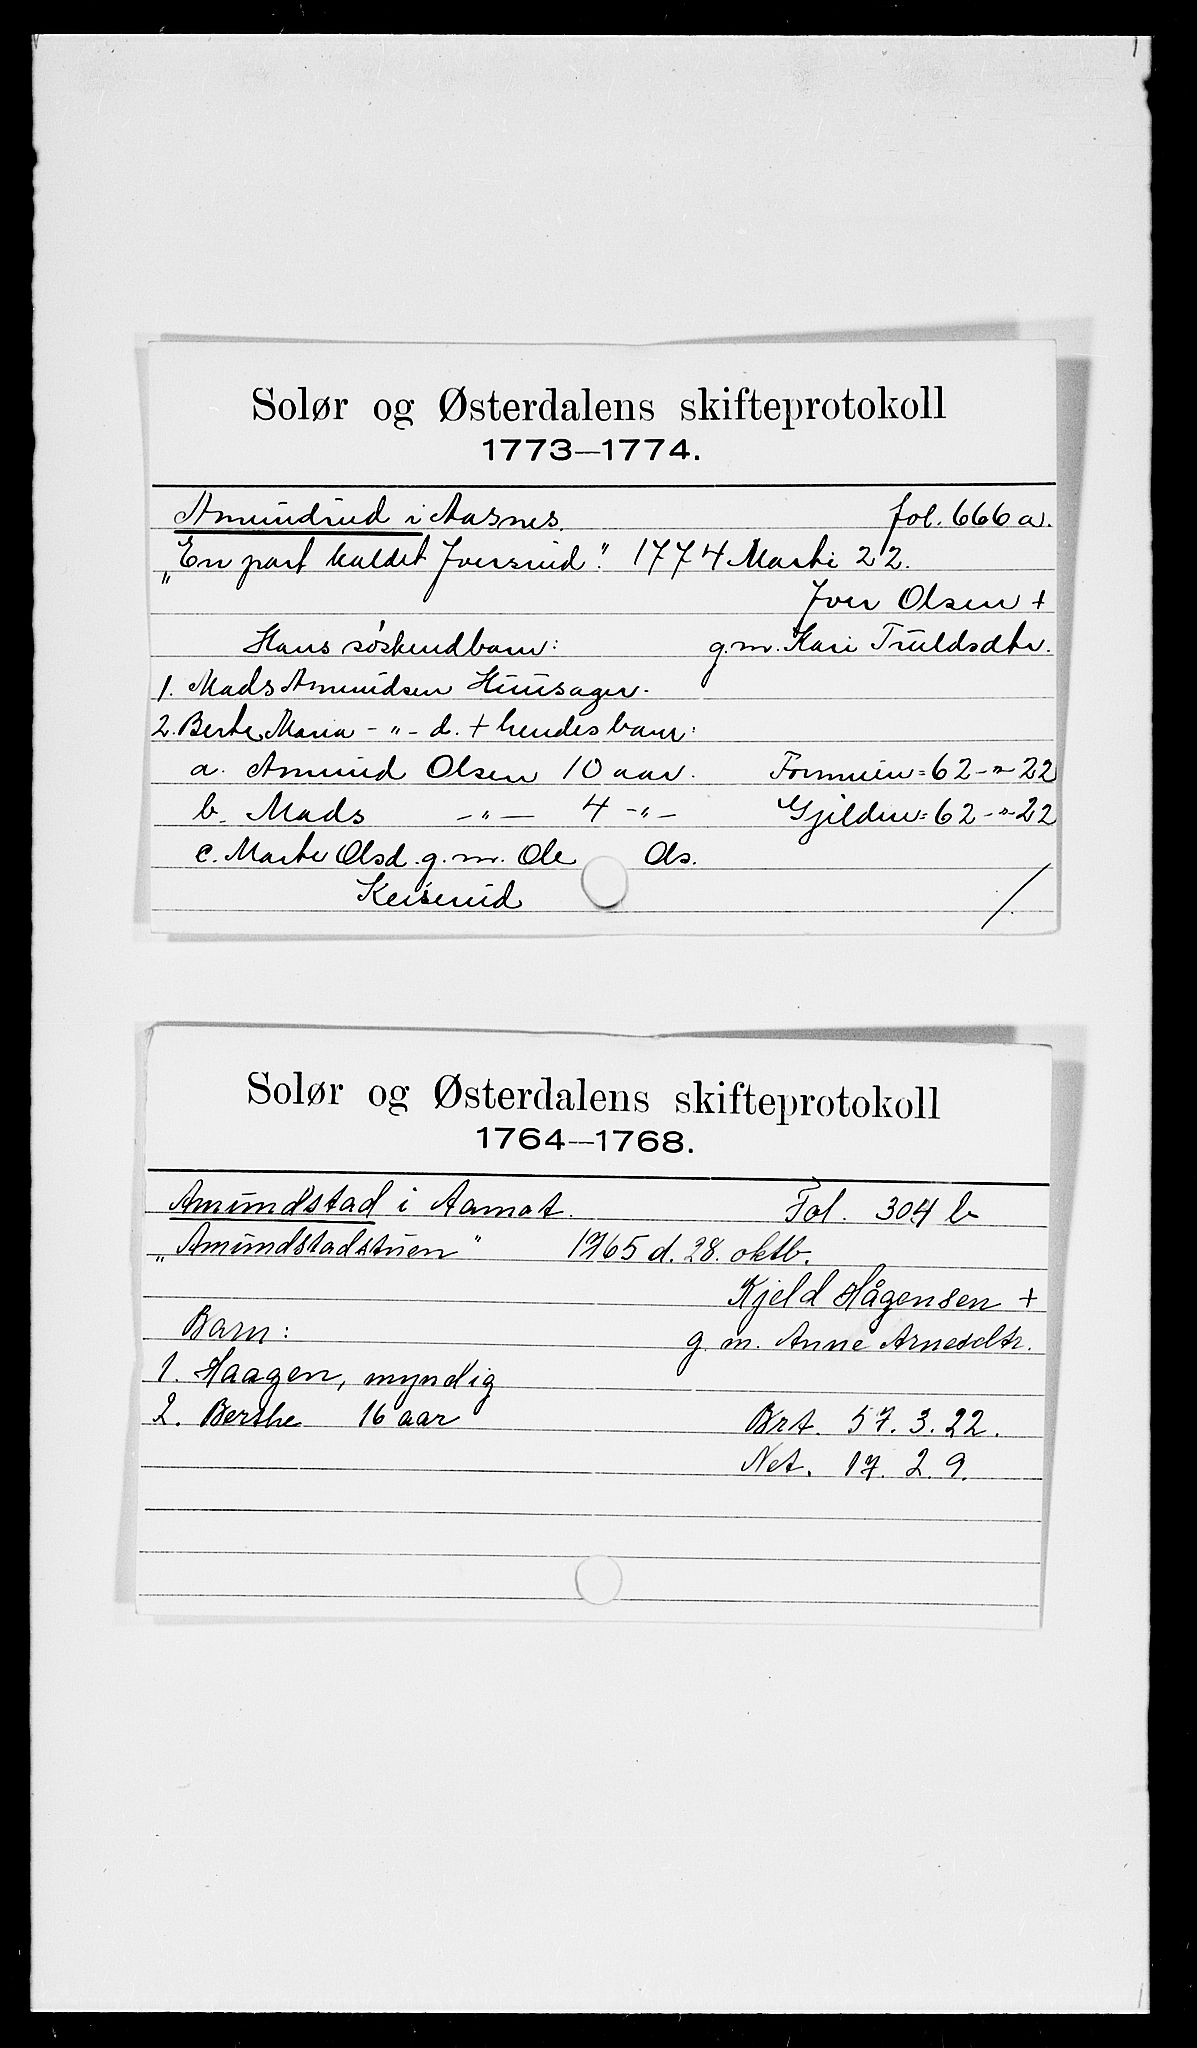 Solør og Østerdalens skifteprotokoll
1773—1774.
Amundrud i Aasnes. fol. 666 a.
„En part kaldet Iversrud". 1774 Marti 22.
Iver Olsen +
Hans søskendbarn: g.m. Kari Truldsdtr.
1. Mads Amundsen Huusager.
2. Berte Maria -"- d. + hendes barn:
a. Amund Olsen 10 aar. Formuen = 62 -"- 22
b. Mads -"- 4 -"- Gjelden = 62 -"- 22
c. Marte Olsd. g.m. Ole Os.
Keiserud
Solør og Østerdalens skifteprotokoll
1764—1768.
Amundstad i Aamot. Fol. 304 b
„Amundstadstuen" 1765 d. 28. oktb.
Kjeld Hågensen +
Barn: g. m. Anne Arnesdtr.
1. Haagen, myndig
2. Berthe 16 aar Brt. 57. 3. 22.
Net. 17. 2. 9.